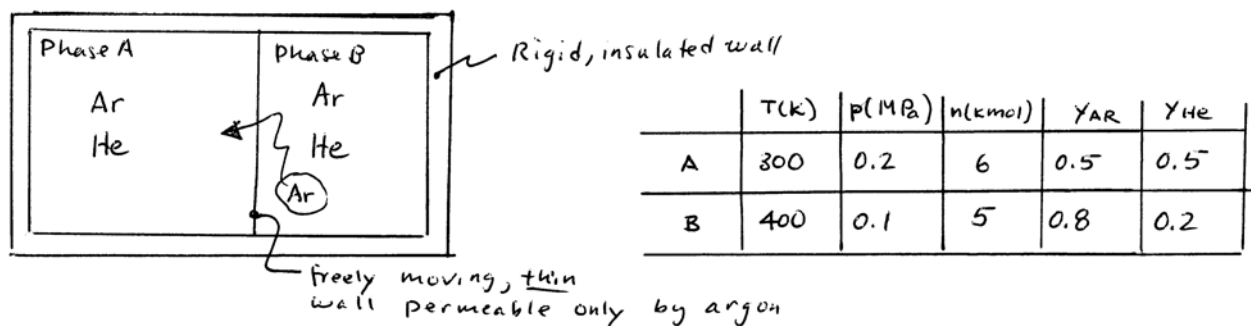 Phase A
Phase B
Rigid, insulated wall
Ar
Ar
He
He
Ar
freely moving, thin
wall permeable only by argon
T(K) p(MPa) n(kmol) YAR YHe
A 300 0.2 6 0.5 0.5
B 400 0.1 5 0.8 0.2